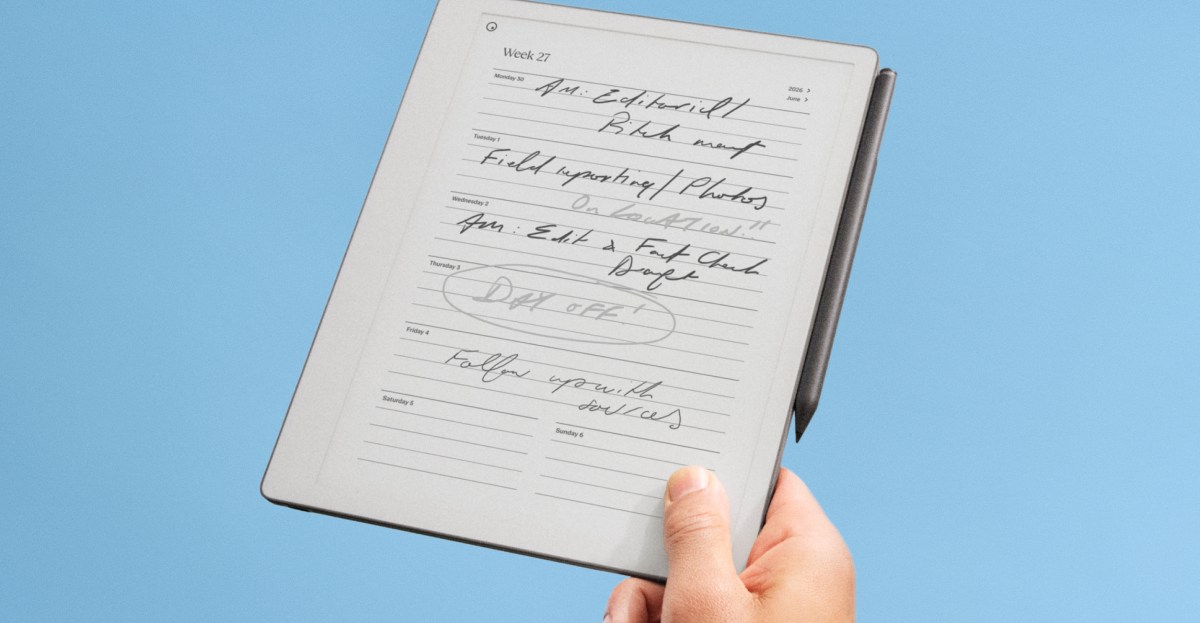 Week 27
2025 >
June >
Monday 30
AM: Editorial/
Pitch meet
Tuesday 1
Field reporting/Photos
On Location!!
Wednesday 2
AM: Edit & Fact Check
Draft
Thursday 3
DAY OFF!
Friday 4
Follow up with
sources
Saturday 5
Sunday 6